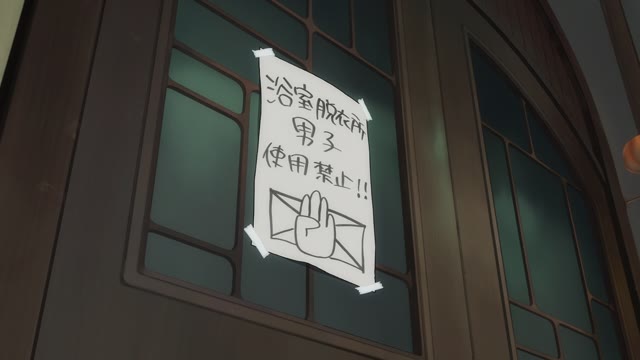 浴室脱衣所
男子
使用禁止!!